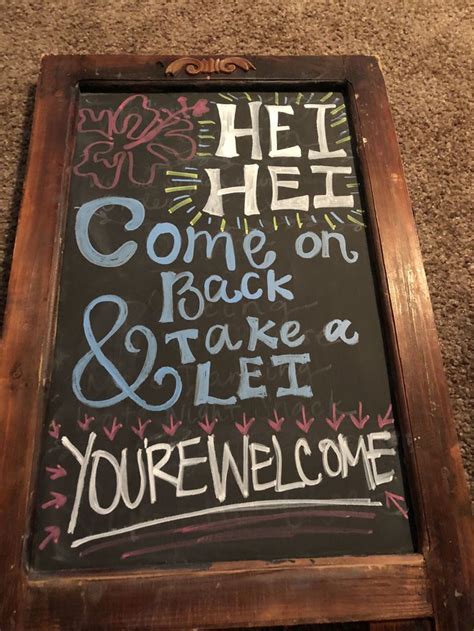 HEI
HEI
Come on
Back
& Take a
LEI
YOU'REWELCOME